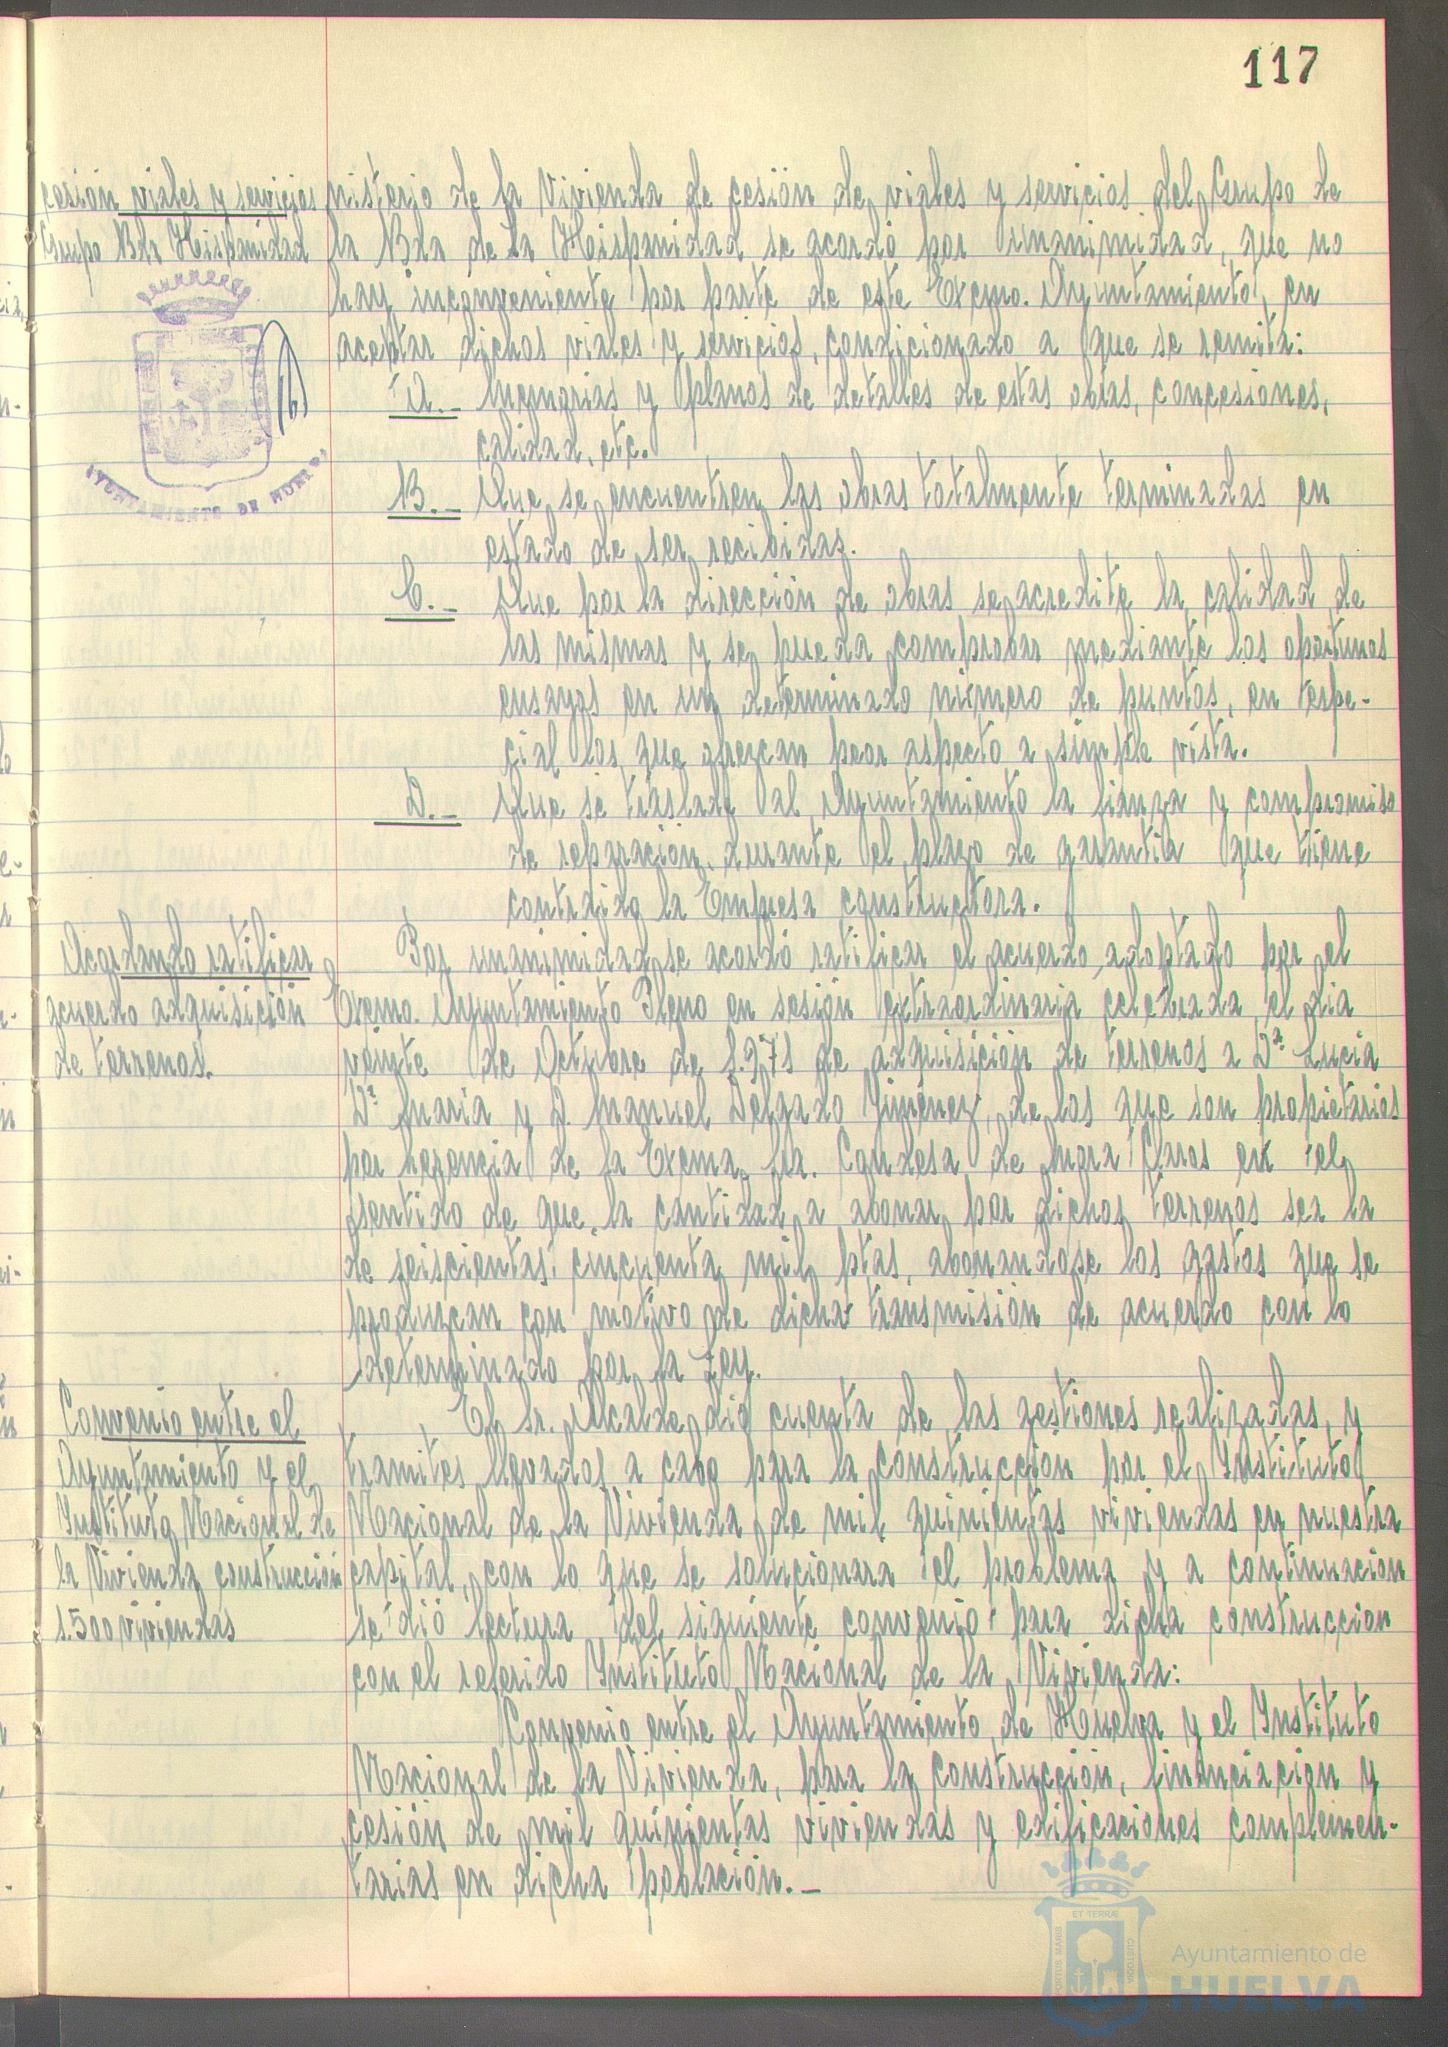 117
cesión viales y servicios
Grupo Bda Hispanidad
AYUNTAMIENTO DE HUELVA
nisterio de la Vivienda de cesión de viales y servicios del Grupo de
la Bda de la Hispanidad se acordó por unanimidad, que no
hay inconveniente por parte de este Excmo. Ayuntamiento, en
aceptar dichos viales y servicios, condicionado a que se remita:
A.- Memorias y planos de detalles de estas obras, concesiones,
calidad, etc.
B.- Que se encuentren las obras totalmente terminadas en
estado de ser recibidas.
C.- Que por la dirección de obras se acredite la calidad de
las mismas y se pueda comprobar mediante los oportunos
ensayos en un determinado número de puntos, en espe-
cial los que ofrezcan peor aspecto a simple vista.
D.- Que se traslade al Ayuntamiento la fianza y compromiso
de reparación durante el plazo de garantía que tiene
contraido la Empresa constructora.
Acordando ratificar
acuerdo adquisición
de terrenos.
Por unanimidad se acordó ratificar el acuerdo adoptado por el
Excmo. Ayuntamiento Pleno en sesión extraordinaria celebrada el dia
veinte de Octubre de 1.971 de adquisición de terrenos a Dª Lucia
Dª Maria y D. Manuel Delgado Jiménez, de los que son propietarios
por herencia de la Excma. Sra. Condesa de Mora Claros en el
sentido de que la cantidad a abonar por dichos terrenos sea la
de seiscientas cincuenta mil ptas, abonandose los gastos que se
produzcan con motivo de dicha transmisión de acuerdo con lo
determinado por la Ley.
Convenio entre el
Ayuntamiento y el
Instituto Nacional de
la Vivienda construcción
1.500 viviendas
El Sr. Alcalde dió cuenta de las gestiones realizadas, y
tramites llevados a cabo para la construcción por el Instituto
Nacional de la Vivienda de mil quinientas viviendas en nuestra
capital, con lo que se solucionara el problema y a continuacion
se dió lectura del siguiente convenio para dicha construccion
con el referido Instituto Nacional de la Vivienda:
Convenio entre el Ayuntamiento de Huelva y el Instituto
Nacional de la Vivienda, para la construcción, financiacion y
cesión de mil quinientas viviendas y edificaciones complemen-
tarias en dicha población.-
ET TERRÆ
PORTUS MARIS
CUSTODIA
Ayuntamiento de
HUELVA